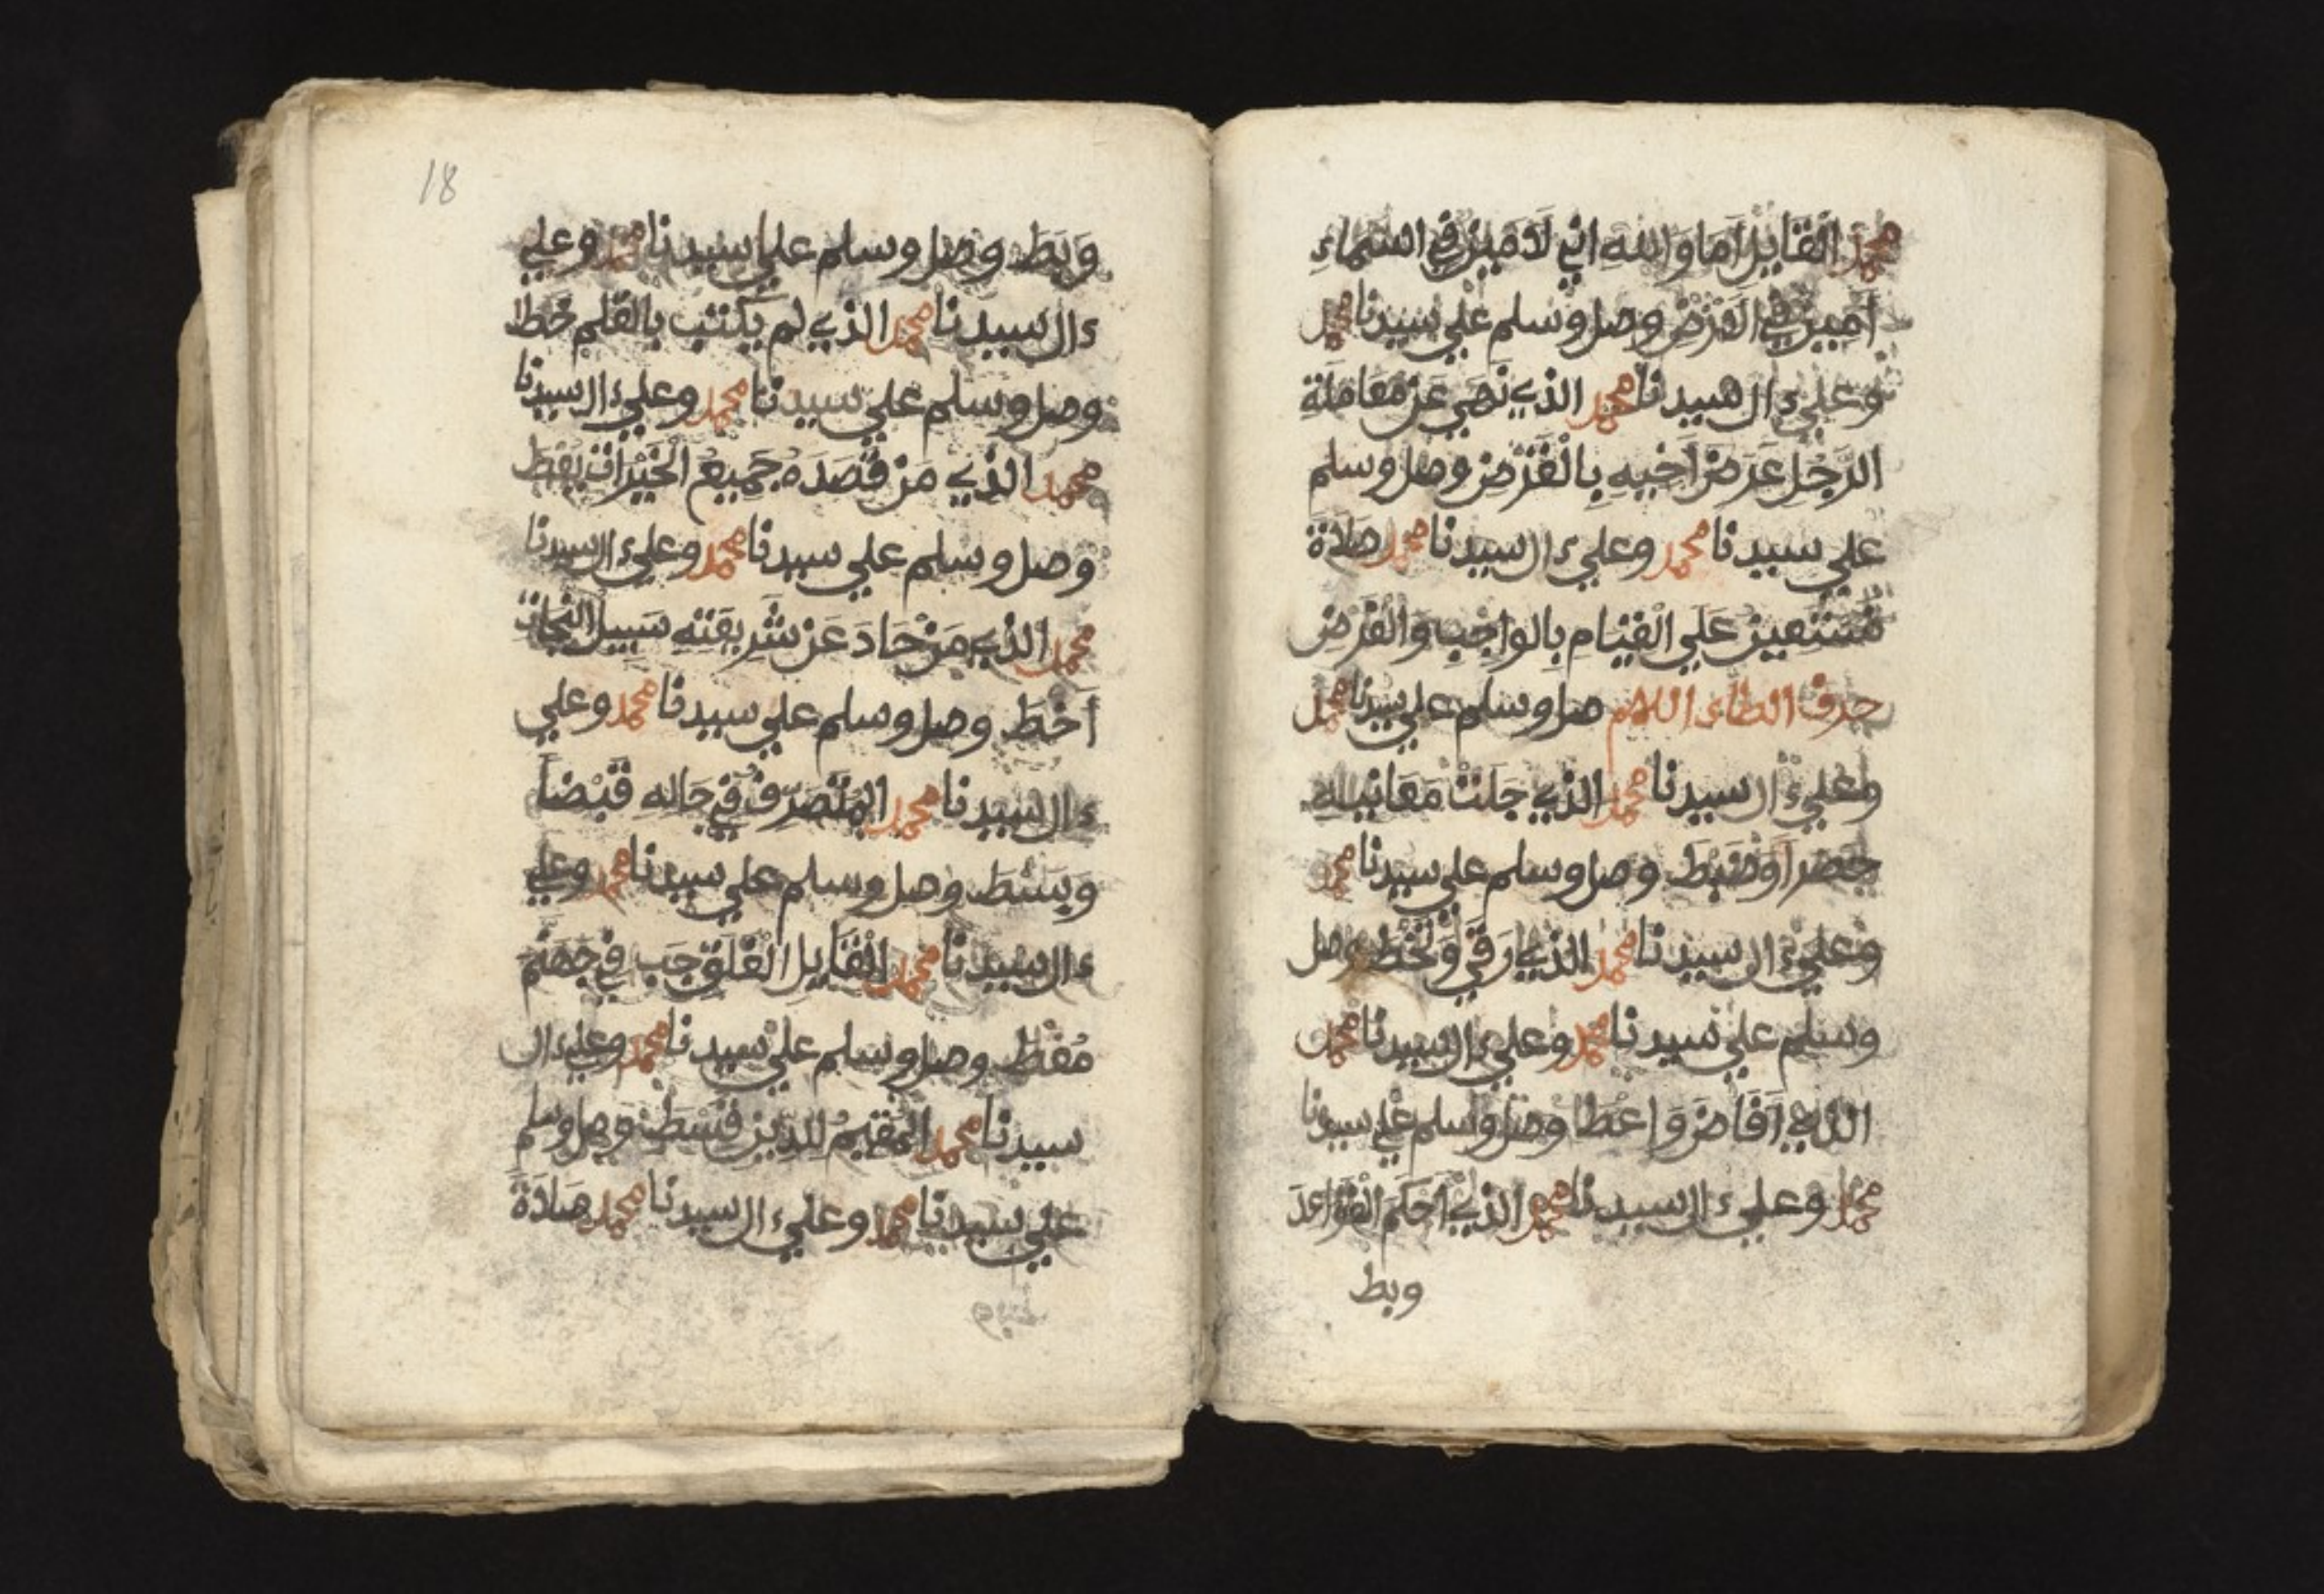 محمد القايل اما والله اني لامين في السماء
امين في الارض وصل وسلم علي سيدنا محمد
وعلي ءال سيدنا محمد الذي نهي عن معاملة
الرجل عرض اخيه بالقرض وصل وسلم
علي سيدنا محمد وعلي ءال سيدنا محمد صلاة
نستعين علي القيام بالواجب والفرض
حرف الطاء اللهم صل وسلم علي سيدنا محمد
وعلي ءال سيدنا محمد الذي جلت معانيه
حصرا وضبط وصل وسلم علي سيدنا محمد
وعلي ءال سيدنا محمد الذي رقي وتخط وصل
وسلم علي سيدنا محمد وعلي ءال سيدنا محمد
الذي افاض واعطا وصل وسلم علي سيدنا
محمد وعلي ءال سيدنا محمد الذي احكم القواعد
وبط
18
وبط وصل وسلم علي سيدنا محمد وعلي
ءال سيدنا محمد الذي لم يكتب بالقلم خط
وصل وسلم علي سيدنا محمد وعلي ءال سيدنا
محمد الذي من قصده جميع الخيرات يعط
وصل وسلم علي سيدنا محمد وعلي ءال سيدنا
محمد الذي من حاد عن شريعته سبيل النجات
اخط وصل وسلم علي سيدنا محمد وعلي
ءال سيدنا محمد المتصرف في حاله قبضا
وبسط وصل وسلم علي سيدنا محمد وعلي
ءال سيدنا محمد القايل الفلق جب في جهنم
مغط وصل وسلم علي سيدنا محمد وعلي ءال
سيدنا محمد المقيم للدين قسط وصل وسلم
علي سيدنا محمد وعلي ءال سيدنا محمد صلاة